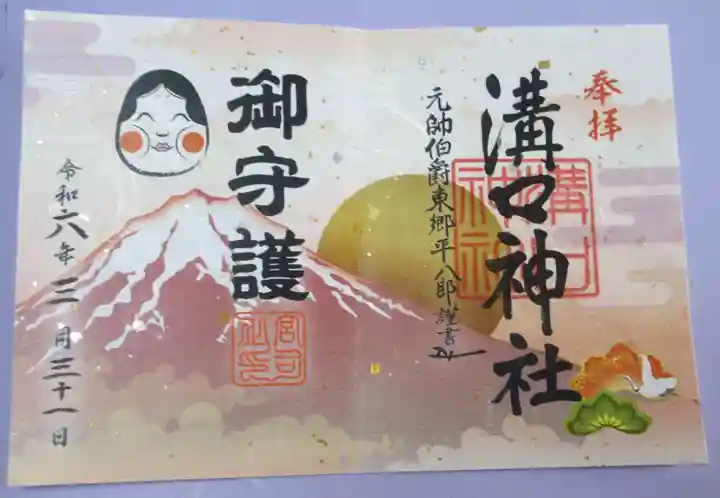 奉拝
溝口神社
元帥伯爵東郷平八郎謹書
御守護
令和六年三月三十一日